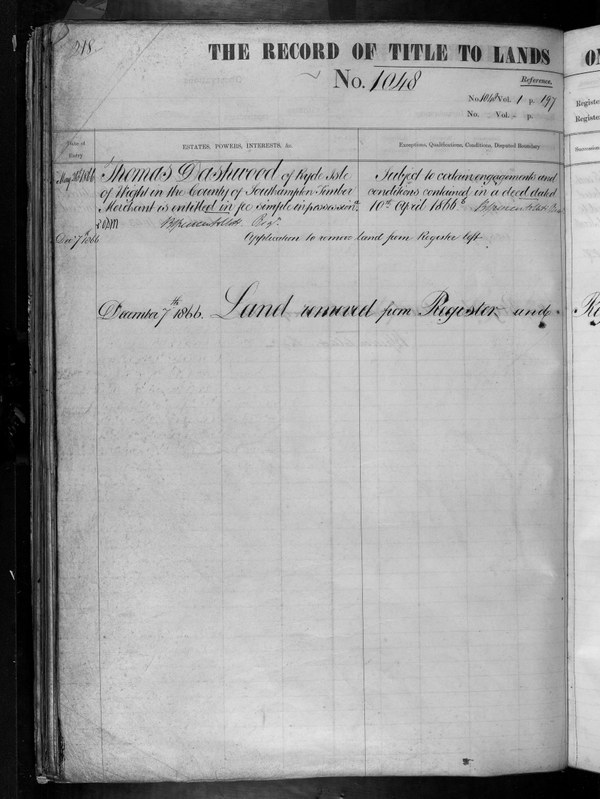 218
THE RECORD OF TITLE TO LANDS
No. 1048
Reference.
No. 1048 Vol. 1 p. 197
No. Vol. p.
Date of Entry
ESTATES, POWERS, INTERESTS, &c.
Exceptions, Qualifications, Conditions, Disputed Boundary
Thomas Dashwood of Ryde Isle
of Wight in the County of Southampton Timber
Merchant is entitled in fee simple in possession
Subject to certain engagements and
conditions contained in a deed dated
10th April 1866
Decr 7th 1866
Application to remove land from Register left
December 7th 1866. Land removed from Register and
ON
Register
Register
Re